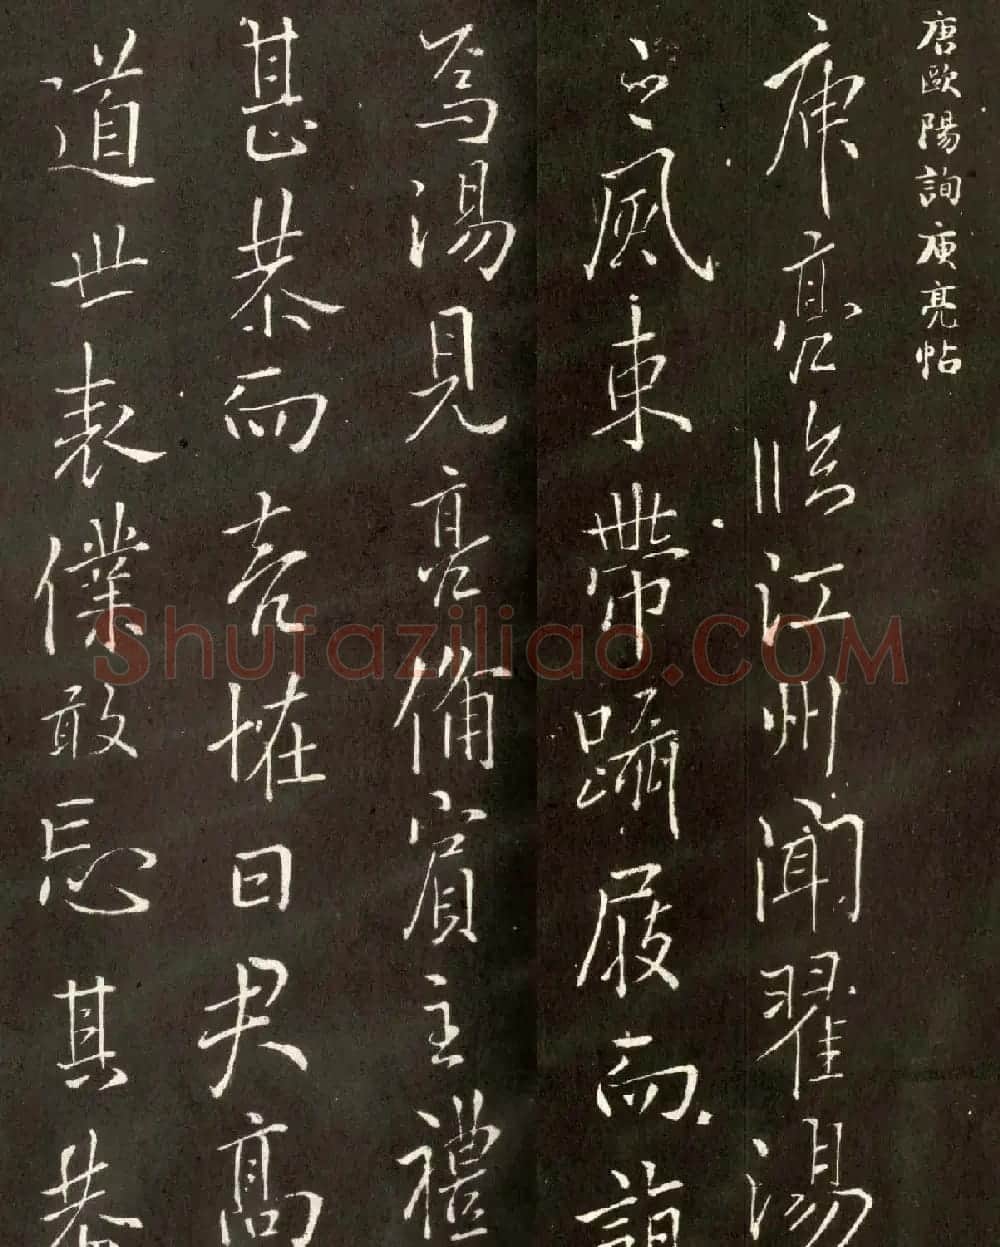 唐歐陽詢庾亮帖
庾亮臨江州聞翟湯
之風束帶躡屐而詣
焉湯見亮備賓主禮
甚恭而亮怪曰君高
道世表僕敢忘其恭
Shufaziliao.COM